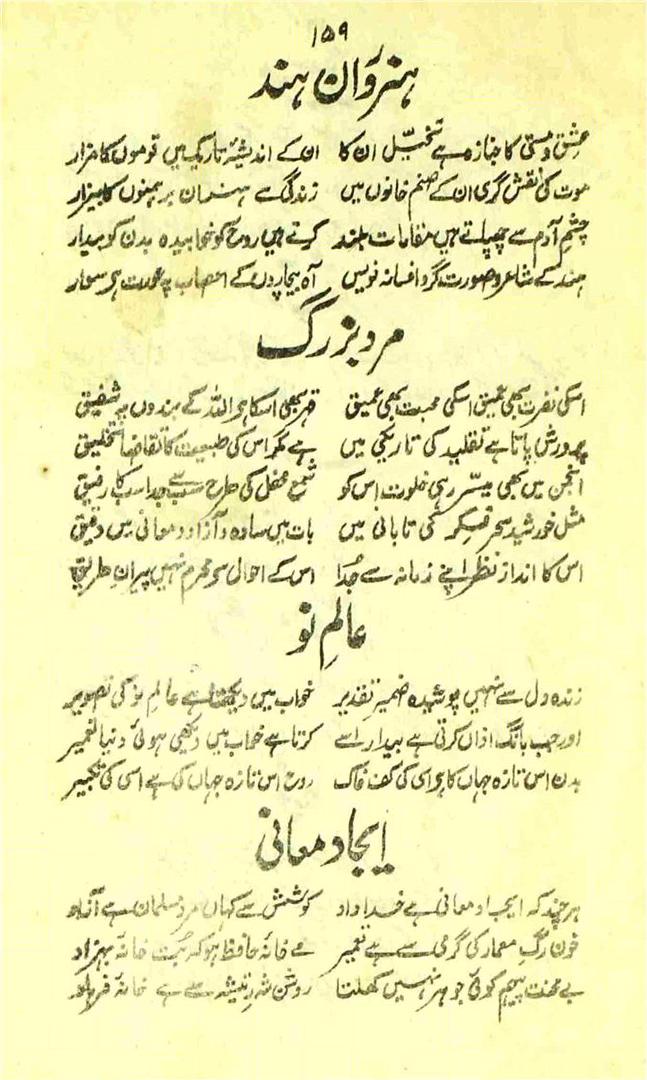 ۱۵۹
ہنروَرانِ ہند
عشق و مستی کا جنازہ ہے تخیّل ان کا    ان کے اندیشۂ تاریک میں قوموں کا مزار
موت کی نقش گری ان کے صنم خانوں میں    زندگی سے ہنر ان برہمنوں کا بیزار
چشمِ آدم سے چھپاتے ہیں مقاماتِ بلند    کرتے ہیں روح کو خوابیدہ بدن کو بیدار
ہند کے شاعر و صورت گر و افسانہ نویس    آہ بیچاروں کے اعصاب پہ عورت ہے سوار
مردِ بزرگ
اسکی نفرت بھی عمیق اسکی محبت بھی عمیق    قہر بھی اسکا ہے اللہ کے بندوں پہ شفیق
پرورش پاتا ہے تقلید کی تاریکی میں    ہے مگر اس کی طبیعت کا تقاضا تخلیق
انجمن میں بھی میسّر رہی خلوت اس کو    شمعِ محفل کی طرح سب سے جدا سب کا رفیق
مثلِ خورشیدِ سحر فکر کی تابانی میں    بات میں سادہ و آزادہ معانی میں دقیق
اس کا اندازِ نظر اپنے زمانہ سے جُدا    اس کے احوال سے محرم نہیں پیرانِ طریق
عالمِ نو
زندہ دل سے نہیں پوشیدہ ضمیرِ تقدیر    خواب میں دیکھتا ہے عالمِ نو کی تصویر
اور جب بانگِ اذاں کرتی ہے بیدار اسے    کرتا ہے خواب میں دیکھی ہوئی دنیا تعمیر
بدن اس تازہ جہاں کا ہے اسی کی کفِ خاک    روح اس تازہ جہاں کی ہے اسی کی تکبیر
ایجادِ معانی
ہرچند کہ ایجادِ معانی ہے خداداد    کوشش سے کہاں مردِ مسلمان ہے آزاد
خونِ رگِ معمار کی گرمی سے ہے تعمیر    مے خانۂ حافظ ہو کہ بُت خانۂ بہزاد
بے محنتِ پیہم کوئی جوہر نہیں کھلتا    روشن شررِ تیشہ سے ہے خانۂ فرہاد